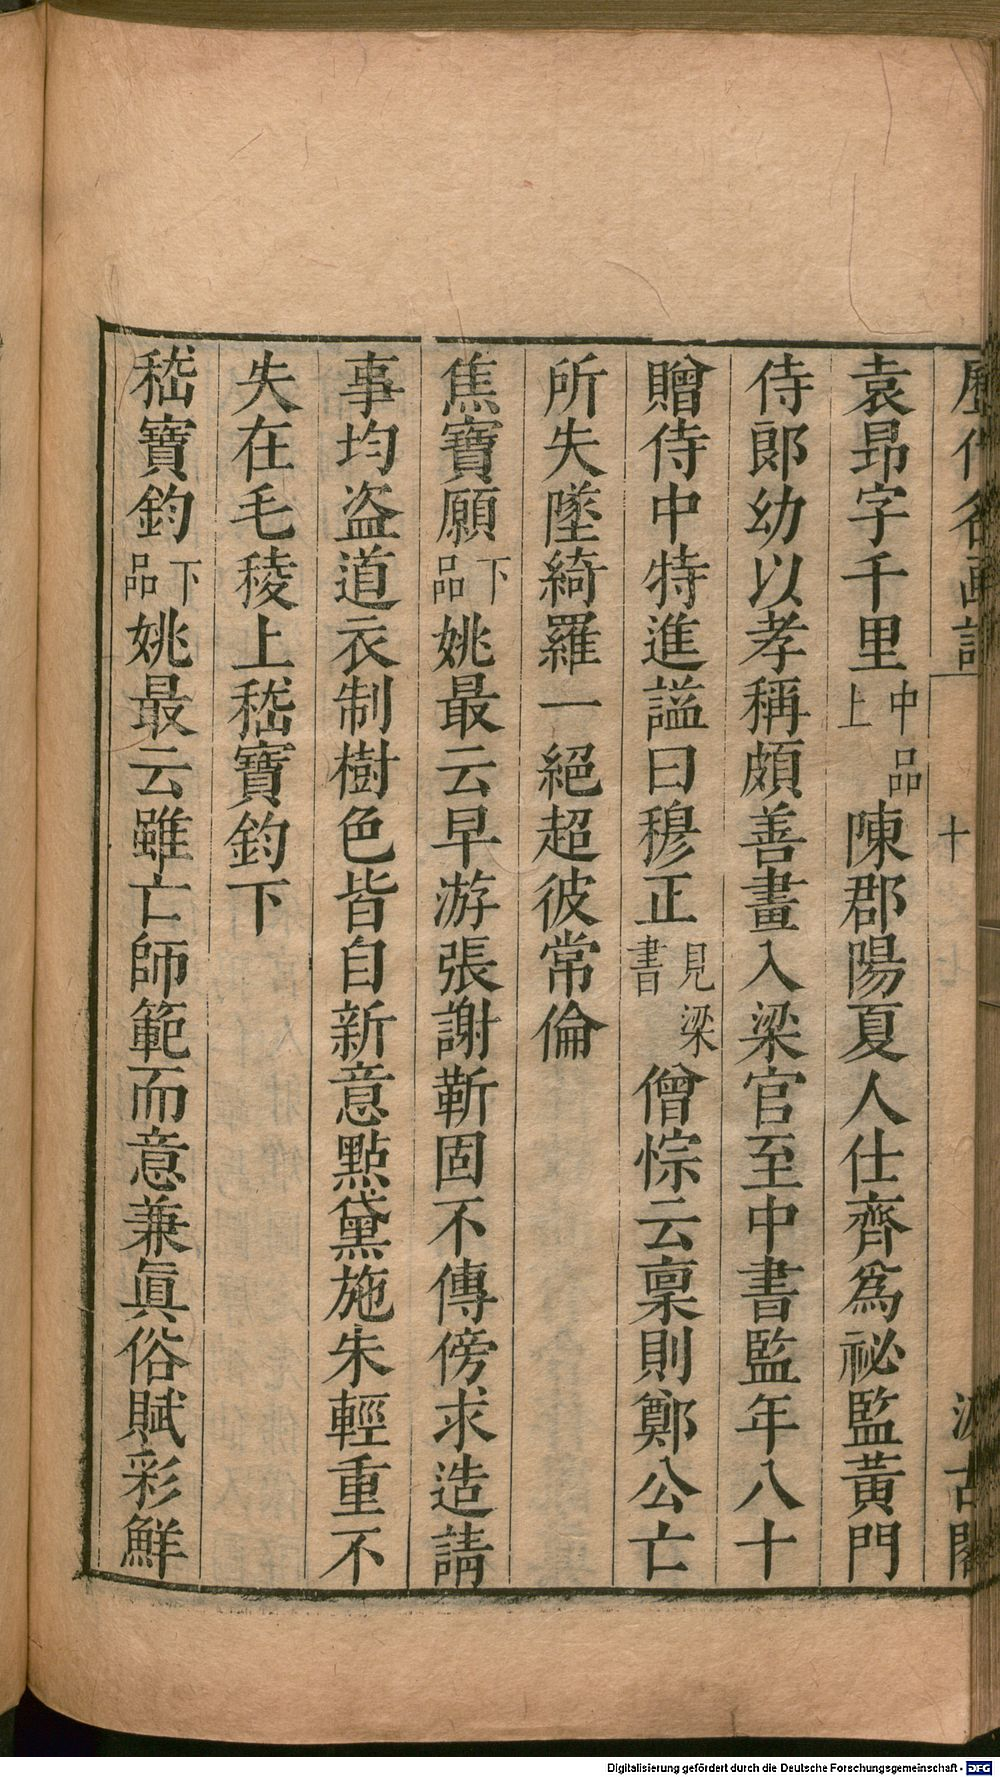 歷代名畫記 十 汲古閣
袁昻字千里中品上陳郡陽夏人仕齊爲祕監黃門
侍郎幼以孝稱頗善畫入梁官至中書監年八十
贈侍中特進謚曰穆正見梁書僧悰云稟則鄭公亡
所失墜綺羅一絕超彼常倫
焦寶願下品姚最云早游張謝靳固不傳傍求造請
事均盜道衣制樹色皆自新意點黛施朱輕重不
失在毛稜上嵇寶鈞下
嵇寶鈞下品姚最云雖亡師範而意兼眞俗賦彩鮮
Digitalisierung gefördert durch die Deutsche Forschungsgemeinschaft - DFG